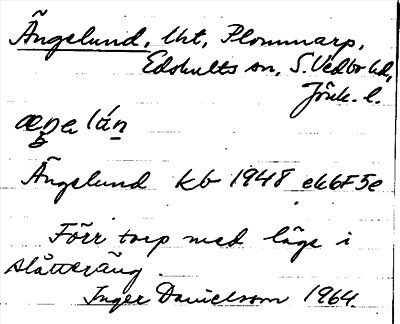 Ängslund, lht, Plommarp,
Edshults sn, S. Vedbo hd,
Jönk. l.
Ängslund kb 1948 ekbf 5e
Förr torp med läge i
slåtteräng.
Inger Danielsson 1964.